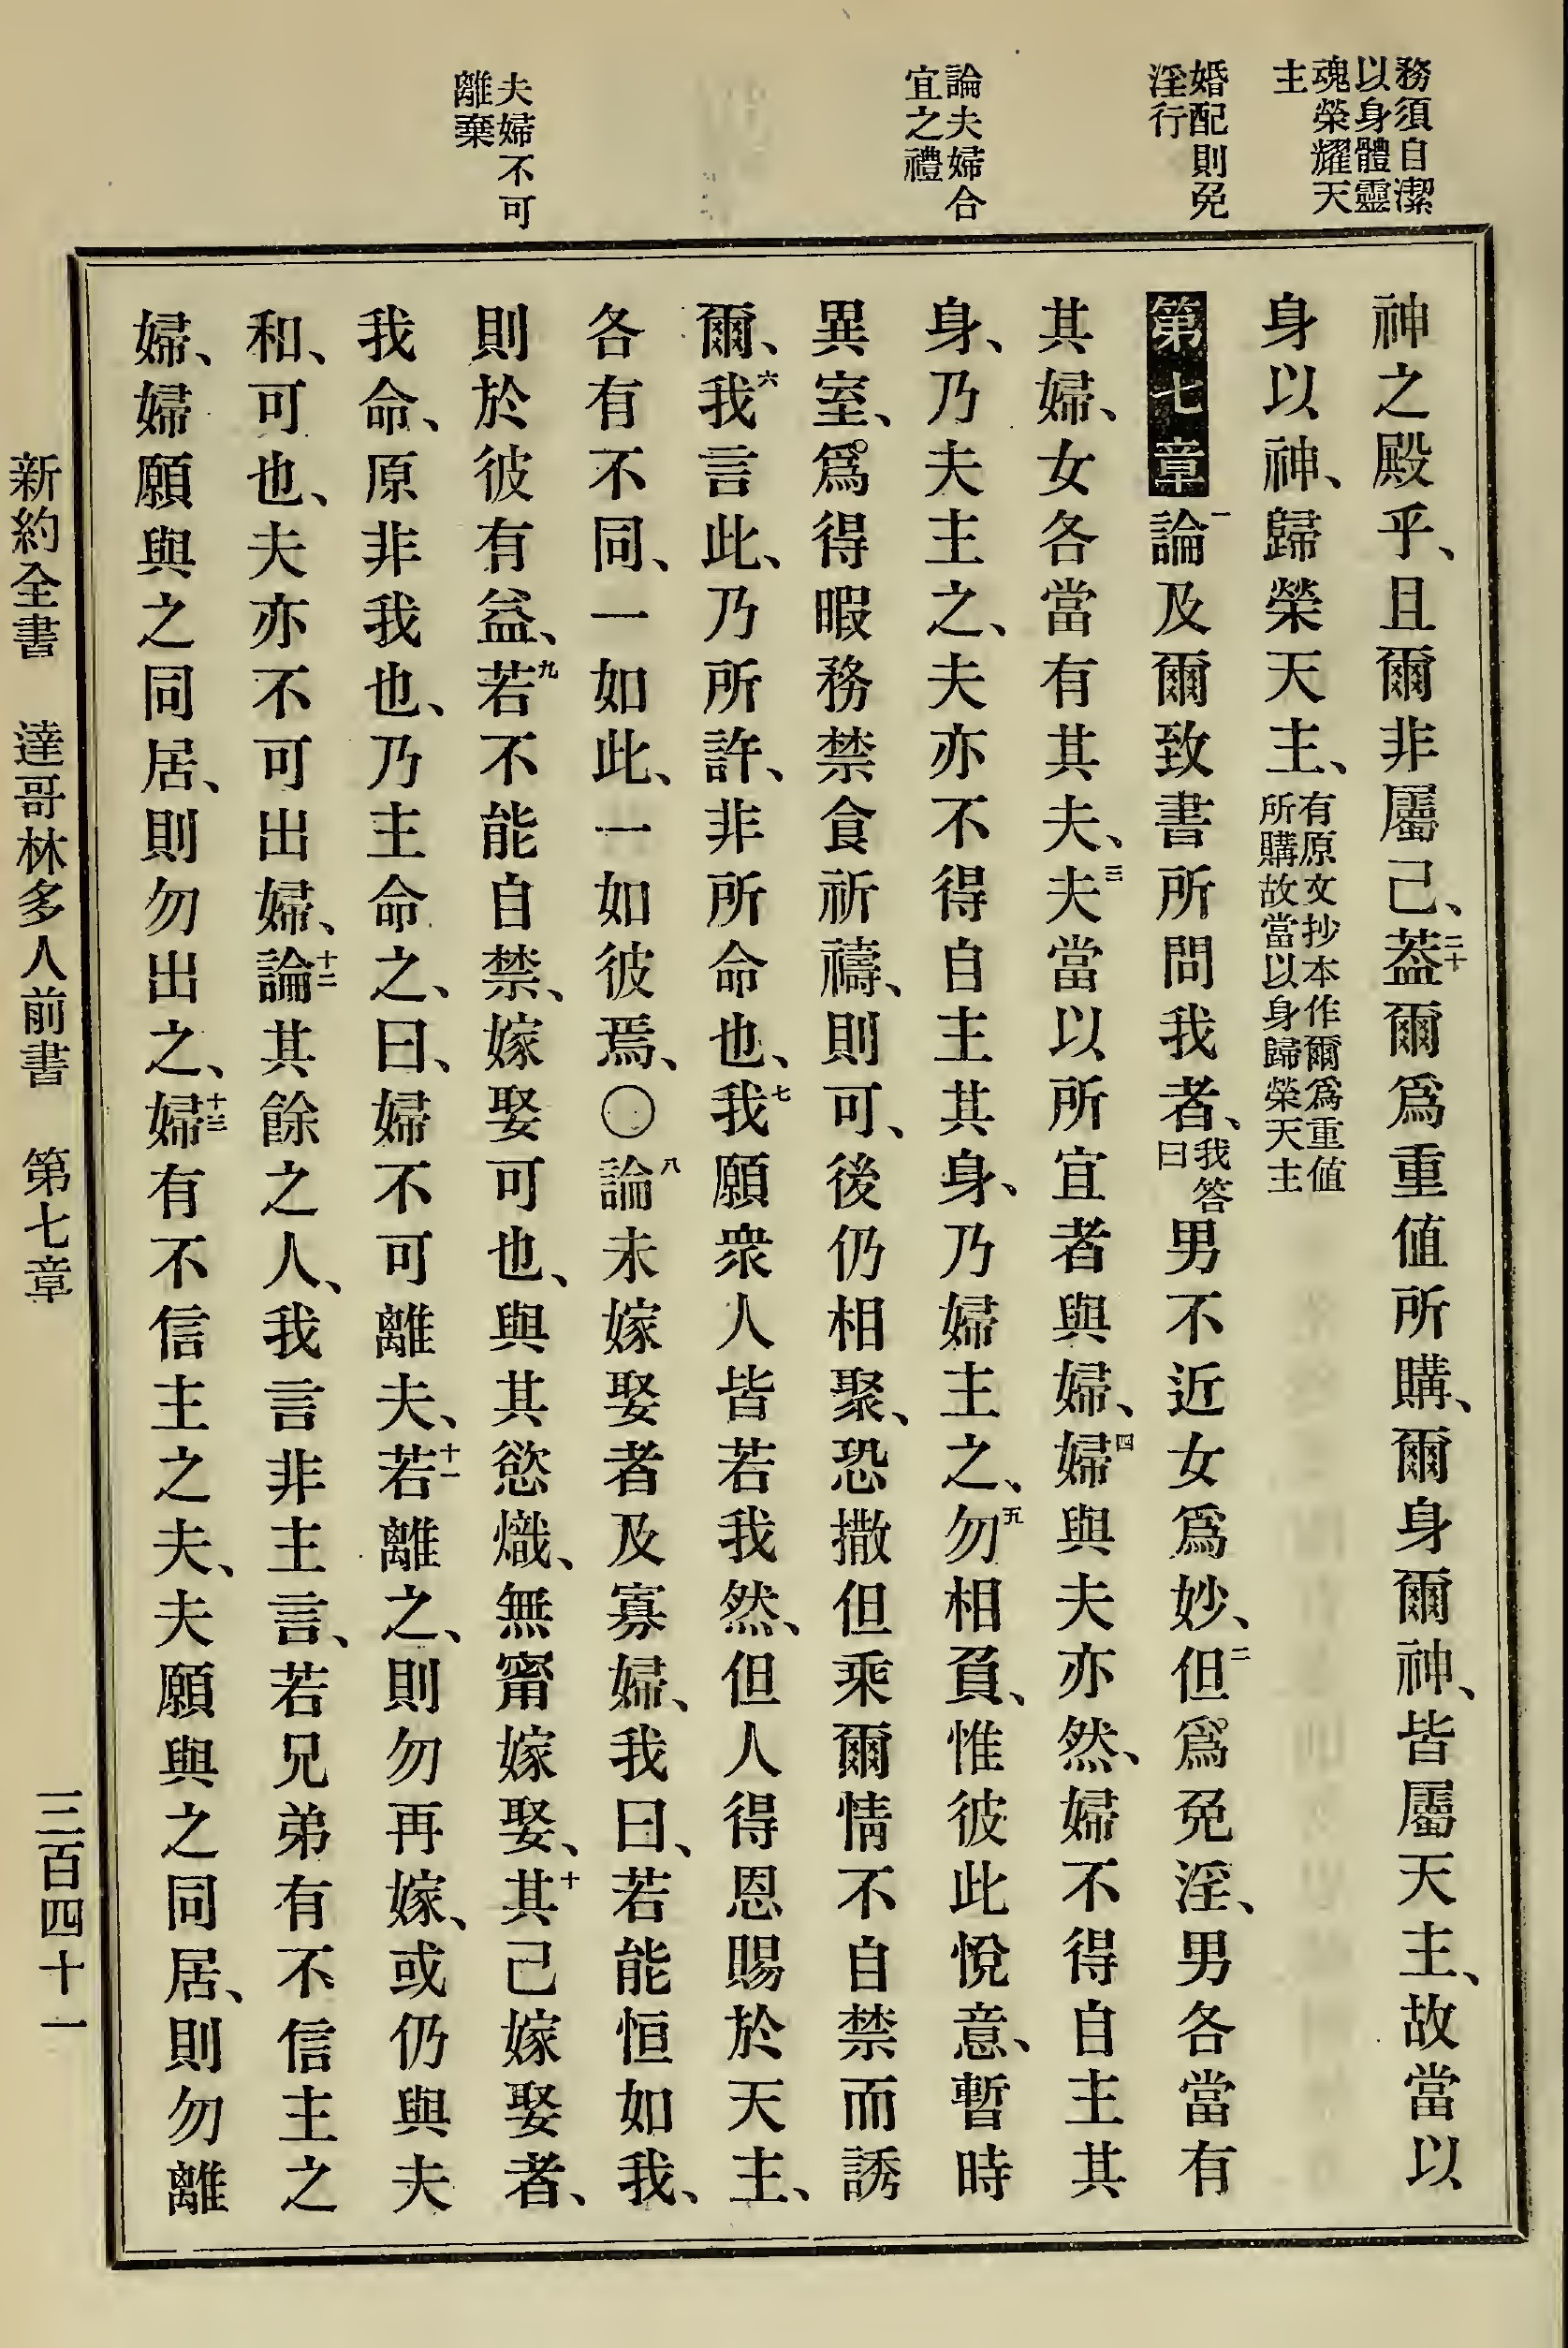 務須自潔
以身體靈
魂榮耀天
主
婚配則免
淫行
論夫婦合
宜之禮
夫婦不可
離棄
神之殿乎、且爾非屬己、二十蓋爾爲重值所購、爾身爾神、皆屬天主、故當以
身以神、歸榮天主、有原文抄本作爾爲重值所購故當以身歸榮天主
第七章一論及爾致書所問我者、我答曰男不近女爲妙、二但爲免淫、男各當有
其婦、女各當有其夫、三夫當以所宜者與婦、四婦與夫亦然、婦不得自主其
身、乃夫主之、夫亦不得自主其身、乃婦主之、五勿相負、惟彼此悅意、暫時
異室、爲得暇務禁食祈禱、則可、後仍相聚、恐撒但乘爾情不自禁而誘
爾、六我言此、乃所許、非所命也、七我願衆人皆若我然、但人得恩賜於天主、
各有不同、一如此、一如彼焉、〇八論未嫁娶者及寡婦、我曰、若能恒如我、
則於彼有益、九若不能自禁、嫁娶可也、與其慾熾、無甯嫁娶、十其已嫁娶者、
我命、原非我也、乃主命之、曰、婦不可離夫、十一若離之、則勿再嫁、或仍與夫
和、可也、夫亦不可出婦、十二論其餘之人、我言非主言、若兄弟有不信主之
婦、婦願與之同居、則勿出之、十三婦有不信主之夫、夫願與之同居、則勿離
新約全書 達哥林多人前書 第七章 三百四十一